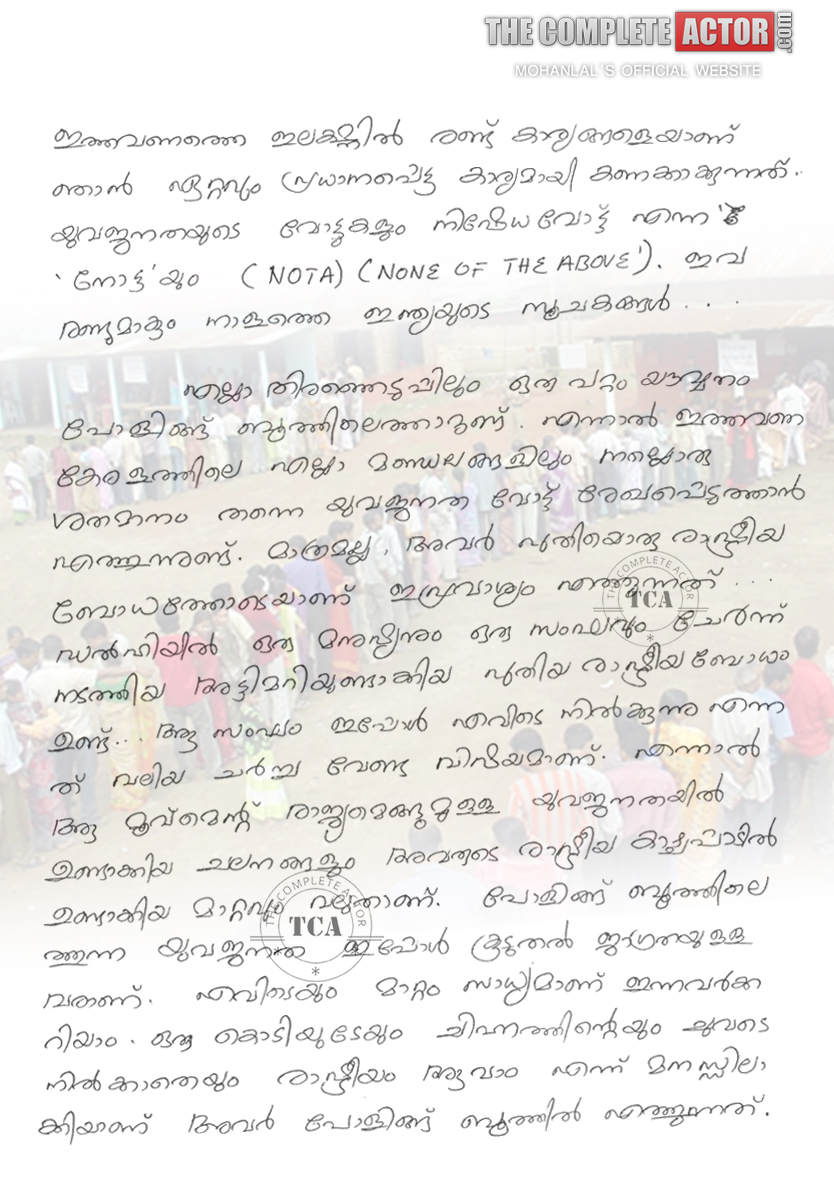 THE COMPLETE ACTOR.com
MOHANLAL'S OFFICIAL WEBSITE
ഇത്തവണത്തെ ഇലക്ഷനിൽ രണ്ട് കാര്യങ്ങളെയാണ്
ഞാൻ ഏറ്റവും പ്രധാനപ്പെട്ട കാര്യമായി കണക്കാക്കുന്നത്.
യുവജനതയുടെ വോട്ടുകളും നിഷേധവോട്ട് എന്ന
'നോട്ട'യും (NOTA) (NONE OF THE ABOVE'). ഇവ
രണ്ടുമാകും നാളത്തെ ഇന്ത്യയുടെ സൂചകങ്ങൾ...
എല്ലാ തിരഞ്ഞെടുപ്പിലും ഒരു പറ്റം യൗവ്വനം
പോളിങ്ങ് ബൂത്തിലെത്താറുണ്ട്. എന്നാൽ ഇത്തവണ
കേരളത്തിലെ എല്ലാ മണ്ഡലങ്ങളിലും നല്ലൊരു
ശതമാനം തന്നെ യുവജനത വോട്ട് രേഖപ്പെടുത്താൻ
എത്തുന്നുണ്ട്. മാത്രമല്ല, അവർ പുതിയൊരു രാഷ്ട്രീയ
ബോധത്തോടെയാണ് ഇപ്രാവശ്യം എത്തുന്നത്...
THE COMPLETE ACTOR
TCA
ഡൽഹിയിൽ ഒരു മനുഷ്യനും ഒരു സംഘവും ചേർന്ന്
നടത്തിയ അട്ടിമറിയുണ്ടാക്കിയ പുതിയ രാഷ്ട്രീയ ബോധം
ഉണ്ട്... ആ സംഘം ഇപ്പോൾ എവിടെ നിൽക്കുന്നു എന്ന
ത് വലിയ ചർച്ച വേണ്ട വിഷയമാണ്. എന്നാൽ
ആ മൂവ്മെന്റ് രാജ്യമെങ്ങുമുള്ള യുവജനതയിൽ
ഉണ്ടാക്കിയ ചലനങ്ങളും അവരുടെ രാഷ്ട്രീയ കാഴ്ചപ്പാടിൽ
ഉണ്ടാക്കിയ മാറ്റവും വലുതാണ്. പോളിങ്ങ് ബൂത്തിലെ
THE COMPLETE ACTOR
TCA
ത്തുന്ന യുവജനത ഇപ്പോൾ കൂടുതൽ ജാഗ്രതയുള്ള
വരാണ്. എവിടെയും മാറ്റം സാധ്യമാണ് ഇന്നവർക്ക
റിയാം. ഒരു കൊടിയുടേയും ചിഹ്നത്തിന്റെയും ചുവടെ
നിൽക്കാതെയും രാഷ്ട്രീയം ആവാം എന്ന് മനസ്സിലാ
ക്കിയാണ് അവർ പോളിങ്ങ് ബൂത്തിൽ എത്തുന്നത്.